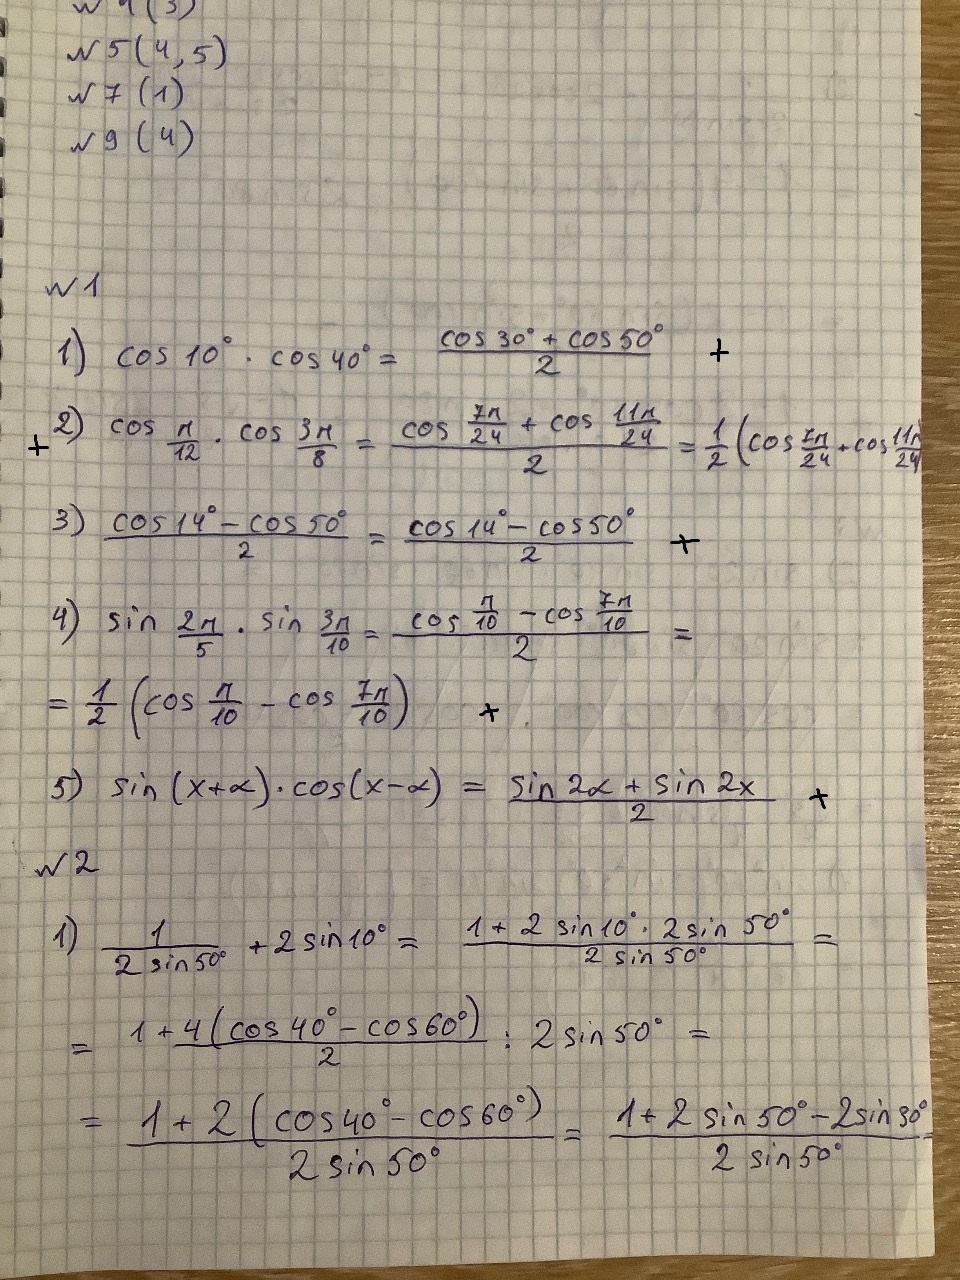 № 4 (3)
№ 5 (4, 5)
№ 7 (1)
№ 9 (4)
№ 1
1) cos 10° · cos 40° = (cos 30° + cos 50°)/2 +
+ 2) cos π/12 · cos 3π/8 = (cos 7π/24 + cos 11π/24)/2 = 1/2 (cos 7π/24 + cos 11π/24
3) (cos 14° – cos 50°)/2 = (cos 14° – cos 50°)/2 +
4) sin 2π/5 · sin 3π/10 = (cos π/10 – cos 7π/10)/2 =
= 1/2 (cos π/10 – cos 7π/10) +
5) sin (x+α) · cos(x–α) = (sin 2α + sin 2x)/2 +
№ 2
1) 1/(2 sin 50°) + 2 sin 10° = (1 + 2 sin 10° · 2 sin 50°)/(2 sin 50°) =
= 1 + 4 (cos 40° – cos 60°)/2 : 2 sin 50° =
= (1 + 2 (cos 40° – cos 60°))/(2 sin 50°) = (1 + 2 sin 50° – 2 sin 30°)/(2 sin 50°) =